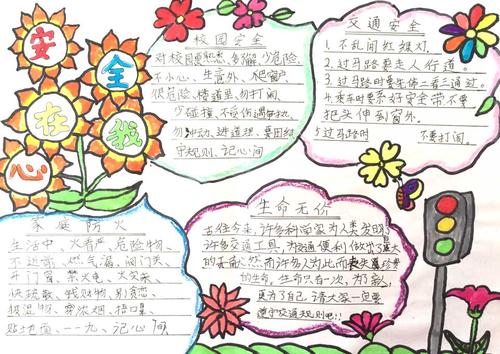 安全在我心
校园安全
对校园要熟悉、多了解、少危险、
不小心、生意外、爬窗户
很危险、楼道里、勿打闹、
少碰撞、不受伤遇
勿冲动、进道理、要团结
守规则、记心间
交通安全
1.不乱闯红绿灯.
2.过马路要走人行道.
3.过马路时要先做二看三通过.
4.乘车时要系好安全带不要
把头伸到窗外.
5过马路时 不要打闹.
家庭防火
生活中、火着严、危险物、
不进前、燃气漏、阀门关
开门窗、禁火电、大火来
快疏散、钱财物、别贪恋
报
贴地面、一一九、记心间
生命无价
古往今来,许多科学家为人类发明
许多交通工具,为交通便利做出了莫大
的贡献然而许多人为此而丧失最珍贵
的生命,生命只有一次,为了
更为了自己,请大家一定要
遵守交通规则吧!!